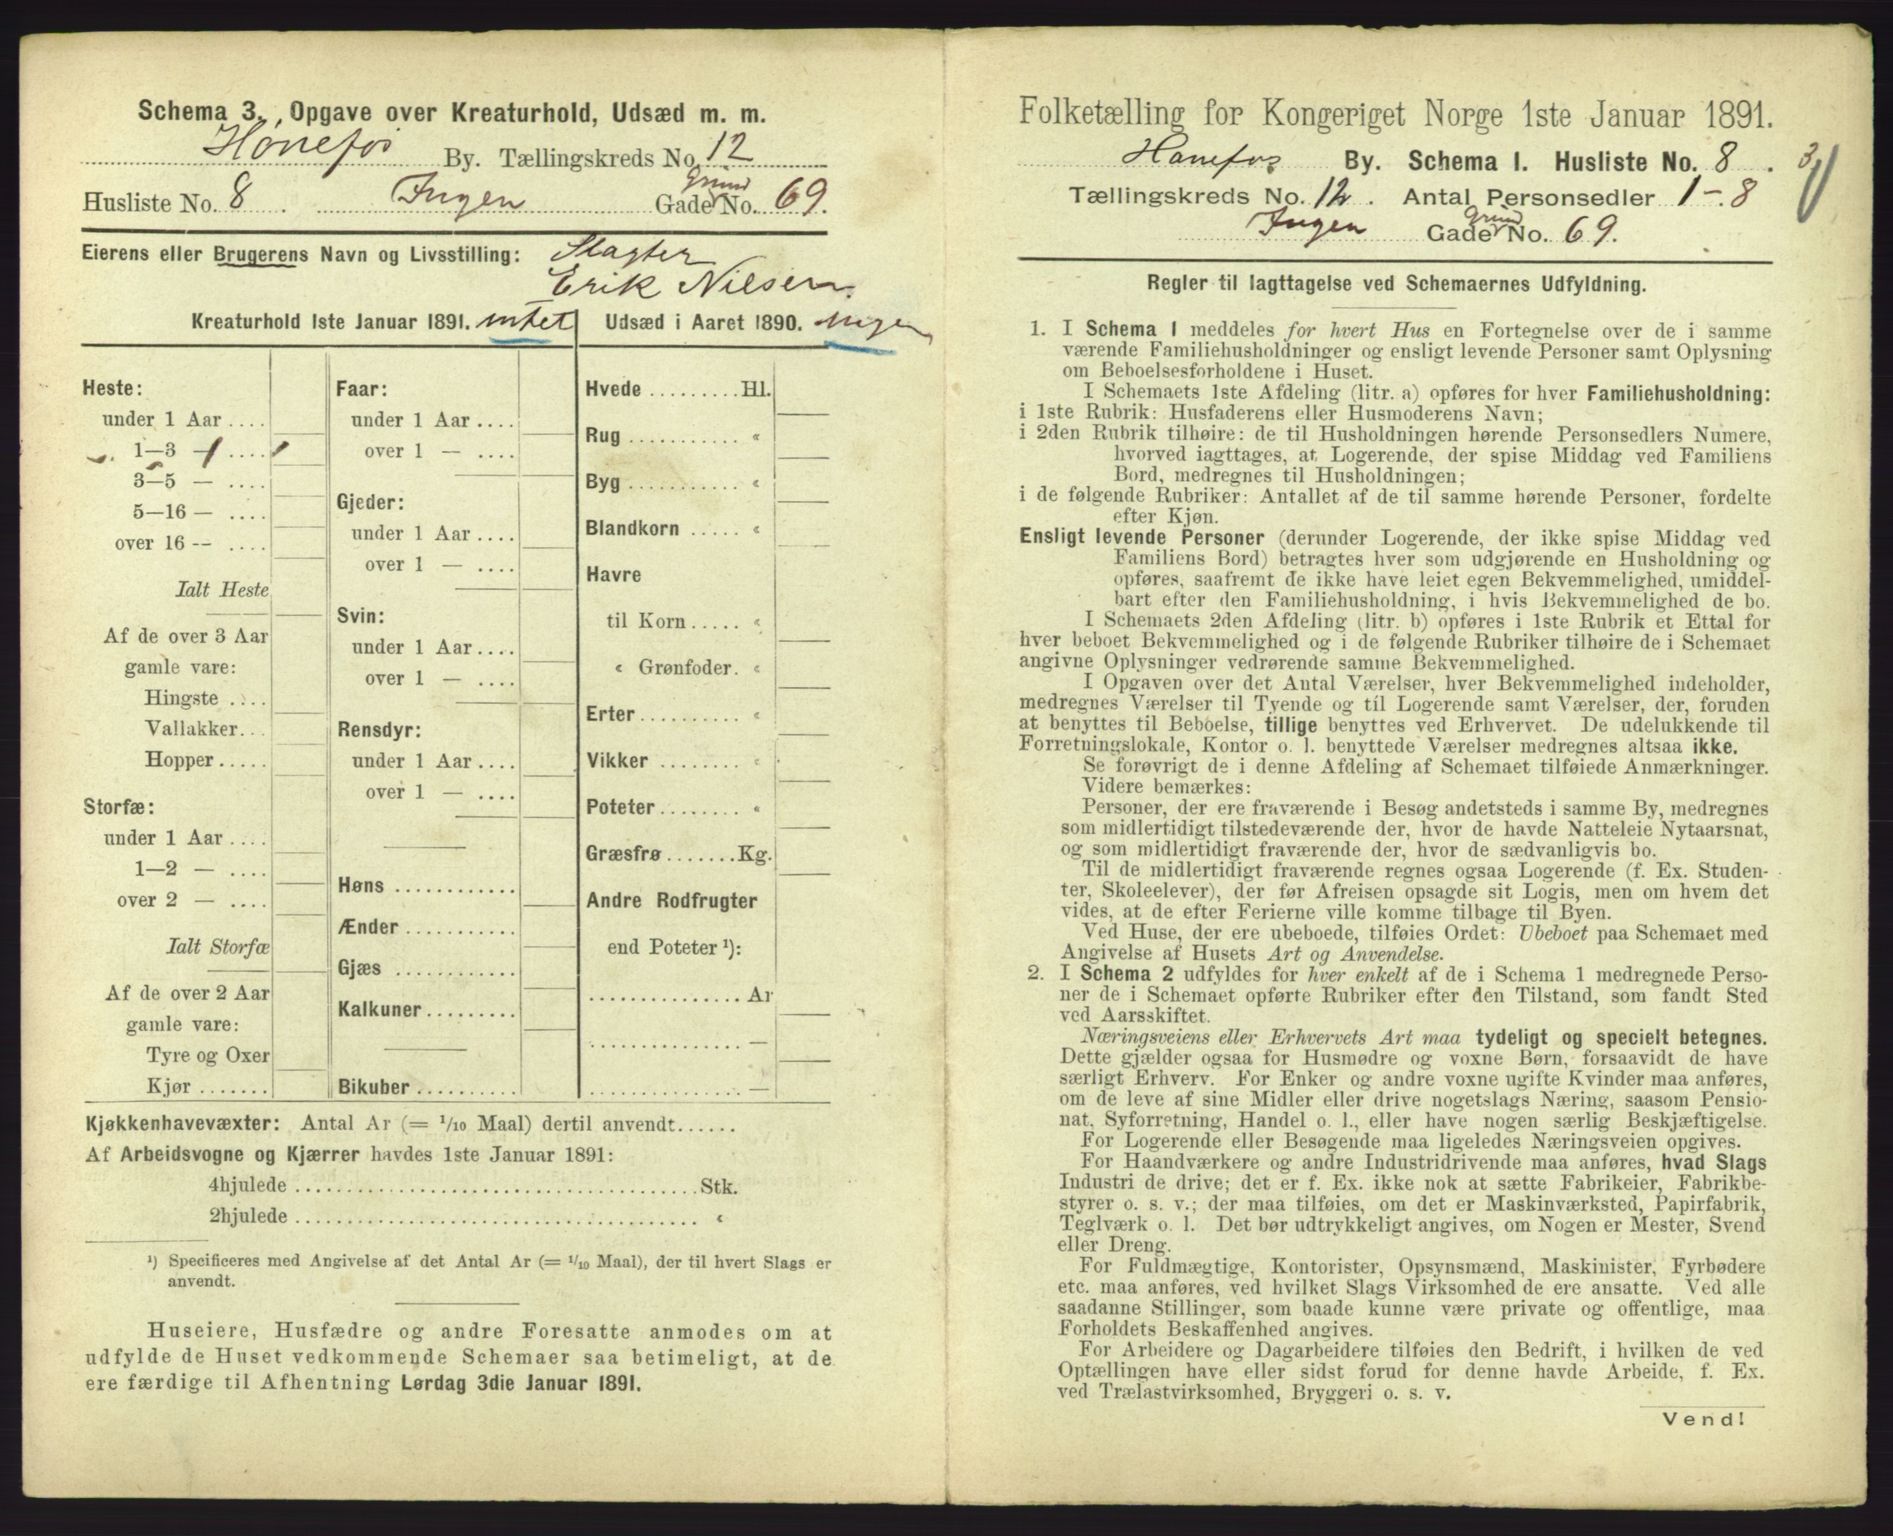 Schema 3. Opgave over Kreaturhold, Udsæd m. m.
Hønefos By. Tællingskreds No. 12
Husliste No. 8. Ingen Gade No. 69.
Grund
Eierens eller Brugerens Navn og Livsstilling: Slagter
Erik Nilsen.
Kreaturhold 1ste Januar 1891. intet
Heste:
under 1 Aar ....
1—3 — ....
3—5 — ....
5—16 — ....
over 16 — ....
Ialt Heste
Af de over 3 Aar
gamle vare:
Hingste ....
Vallakker...
Hopper.....
Storfæ:
under 1 Aar ....
1—2 — ....
over 2 — ....
Ialt Storfæ
Af de over 2 Aar
gamle vare:
Tyre og Oxer
Kjør .......
Faar:
under 1 Aar ....
over 1 — ....
Gjeder:
under 1 Aar ....
over 1 — ....
Svin:
under 1 Aar ....
over 1 — ....
Rensdyr:
under 1 Aar ....
over 1 — ....
Høns ............
Ænder ...........
Gjæs ............
Kalkuner.........
Bikuber ..........
Udsæd i Aaret 1890. Ingen
Hvede .........Hl.
Rug ........... "
Byg ........... "
Blandkorn ..... "
Havre
til Korn ..... "
" Grønfoder. "
Erter .......... "
Vikker ........ "
Poteter ........ "
Græsfrø .......Kg.
Andre Rodfrugter
end Poteter ¹):
............... Ar
............... —
............... —
Kjøkkenhavevæxter: Antal Ar (= 1/10 Maal) dertil anvendt......
Af Arbeidsvogne og Kjærrer havdes 1ste Januar 1891:
4hjulede ........................................Stk.
2hjulede ........................................ "
¹) Specificeres med Angivelse af det Antal Ar (= 1/10 Maal), der til hvert Slags er
anvendt.
Huseiere, Husfædre og andre Foresatte anmodes om at
udfylde de Huset vedkommende Schemaer saa betimeligt, at de
ere færdige til Afhentning Lørdag 3die Januar 1891.
Folketælling for Kongeriget Norge 1ste Januar 1891.
Hønefos By. Schema 1. Husliste No. 8.
Tællingskreds No. 12. Antal Personsedler 1-8
Ingen Gade No. 69.
Grund
Regler til Iagttagelse ved Schemaernes Udfyldning.
1. I Schema 1 meddeles for hvert Hus en Fortegnelse over de i samme
værende Familiehusholdninger og ensligt levende Personer samt Oplysning
om Beboelsesforholdene i Huset.
I Schemaets 1ste Afdeling (litr. a) opføres for hver Familiehusholdning:
i 1ste Rubrik: Husfaderens eller Husmoderens Navn;
i 2den Rubrik tilhøire: de til Husholdningen hørende Personsedlers Numere,
hvorved iagttages, at Logerende, der spise Middag ved Familiens
Bord, medregnes til Husholdningen;
i de følgende Rubriker: Antallet af de til samme hørende Personer, fordelte
efter Kjøn.
Ensligt levende Personer (derunder Logerende, der ikke spise Middag ved
Familiens Bord) betragtes hver som udgjørende en Husholdning og
opføres, saafremt de ikke have leiet egen Bekvemmelighed, umiddel-
bart efter den Familiehusholdning, i hvis Bekvemmelighed de bo.
I Schemaets 2den Afdeling (litr. b) opføres i 1ste Rubrik et Ettal for
hver beboet Bekvemmelighed og i de følgende Rubriker tilhøire de i Schemaet
angivne Oplysninger vedrørende samme Bekvemmelighed.
I Opgaven over det Antal Værelser, hver Bekvemmelighed indeholder,
medregnes Værelser til Tyende og til Logerende samt Værelser, der, foruden
at benyttes til Beboelse, tillige benyttes ved Erhvervet. De udelukkende til
Forretningslokale, Kontor o. l. benyttede Værelser medregnes altsaa ikke.
Se forøvrigt de i denne Afdeling af Schemaet tilføiede Anmærkninger.
Videre bemærkes:
Personer, der ere fraværende i Besøg andetsteds i samme By, medregnes
som midlertidigt tilstedeværende der, hvor de havde Natteleie Nytaarsnat,
og som midlertidigt fraværende der, hvor de sædvanligvis bo.
Til de midlertidigt fraværende regnes ogsaa Logerende (f. Ex. Studen-
ter, Skoleelever), der før Afreisen opsagde sit Logis, men om hvem det
vides, at de efter Ferierne ville komme tilbage til Byen.
Ved Huse, der ere ubeboede, tilføies Ordet: Ubeboet paa Schemaet med
Angivelse af Husets Art og Anvendelse.
2. I Schema 2 udfyldes for hver enkelt af de i Schema 1 medregnede Perso-
ner de i Schemaet opførte Rubriker efter den Tilstand, som fandt Sted
ved Aarsskiftet.
Næringsveiens eller Erhvervets Art maa tydeligt og specielt betegnes.
Dette gjælder ogsaa for Husmødre og voxne Børn, forsaavidt de have
særligt Erhverv. For Enker og andre voxne ugifte Kvinder maa anføres,
om de leve af sine Midler eller drive nogetslags Næring, saasom Pensio-
nat, Syforretning, Handel o. l., eller have nogen særlig Beskjæftigelse.
For Logerende eller Besøgende maa ligeledes Næringsveien opgives.
For Haandværkere og andre Industridrivende maa anføres, hvad Slags
Industri de drive; det er f. Ex. ikke nok at sætte Fabrikeier, Fabrikbe-
styrer o. s. v.; der maa tilføies, om det er Maskinværksted, Papirfabrik,
Teglværk o. l. Det bør udtrykkeligt angives, om Nogen er Mester, Svend
eller Dreng.
For Fuldmægtige, Kontorister, Opsynsmænd, Maskinister, Fyrbødere
etc. maa anføres, ved hvilket Slags Virksomhed de ere ansatte. Ved alle
saadanne Stillinger, som baade kunne være private og offentlige, maa
Forholdets Beskaffenhed angives.
For Arbeidere og Dagarbeidere tilføies den Bedrift, i hvilken de ved
Optællingen have eller sidst forud for denne havde Arbeide, f. Ex.
ved Trælastvirksomhed, Bryggeri o. s. v.
Vend!